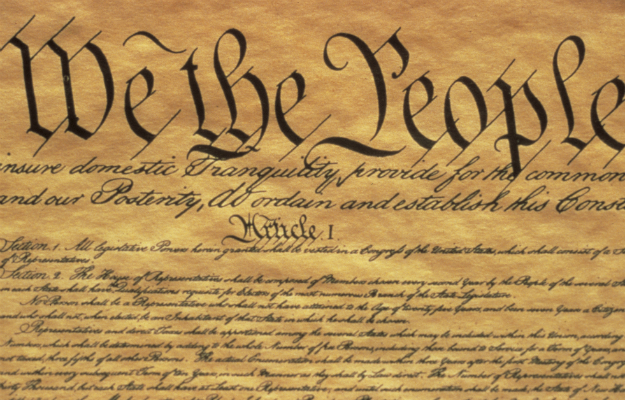 We the People
insure domestic Tranquility, provide for the common
and our Posterity, do ordain and establish this Const
Article. I.
Section. 1. All legislative Powers herein granted shall be vested in a Congress of the United States, which shall consist of a
of Representatives.
Section. 2. The House of Representatives shall be composed of Members chosen every second Year by the People of the several
in each State shall have Qualifications requisite for Electors of the most numerous Branch of the State Legislature.
No Person shall be a Representative who shall not have attained to the Age of twenty five Years, and been seven Years a Citizen
and who shall not, when elected, be an Inhabitant of that State in which he shall be chosen.
Representatives and direct Taxes shall be apportioned among the several States which may be included within this Union, according
Numbers, which shall be determined by adding to the whole Number of free Persons, including those bound to Service for a Term of Years, and
not taxed, three fifths of all other Persons. The actual Enumeration shall be made within three Years after the first Meeting of the
and within every subsequent Term of ten Years, in such Manner as they shall by Law direct. The Number of Representatives shall not
thirty Thousand, but each State shall have at Least one Representative; and until such enumeration shall be made, the State of New